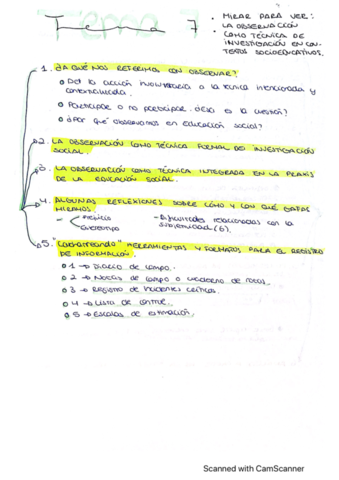 Tema 7
• MIRAR PARA VER:
LA OBSERVACIÓN
COMO TÉCNICA DE
INVESTIGACIÓN EN CON-
TEXTOS SOCIOEDUCATIVOS.
1. ¿A QUÉ NOS REFERIMOS CON OBSERVAR?
De la acción involuntaria a la técnica intencionada y
contextualizada.
Participar o no participar. ¿Esa es la cuestión?
¿Por qué observamos en educación social?
2. LA OBSERVACIÓN COMO TÉCNICA FORMAL DE INVESTIGACIÓN
SOCIAL.
3. LA OBSERVACIÓN COMO TÉCNICA INTEGRADA EN LA PRAXIS
DE LA EDUCACIÓN SOCIAL.
4. ALGUNAS REFLEXIONES SOBRE CÓMO Y CON QUÉ GAFAS
MIRAMOS.
- Prejuicio
Estereotipo
- Dificultades relacionadas con la
(6).
5. HERRAMIENTAS Y FORMATOS PARA EL REGISTRO
DE INFORMACIÓN.
1 → Diario de campo.
2 → Notas de campo o cuaderno de notas.
3 → Registro de incidentes críticos.
4 → Lista de control.
5 → Escalas de estimación.
Scanned with CamScanner